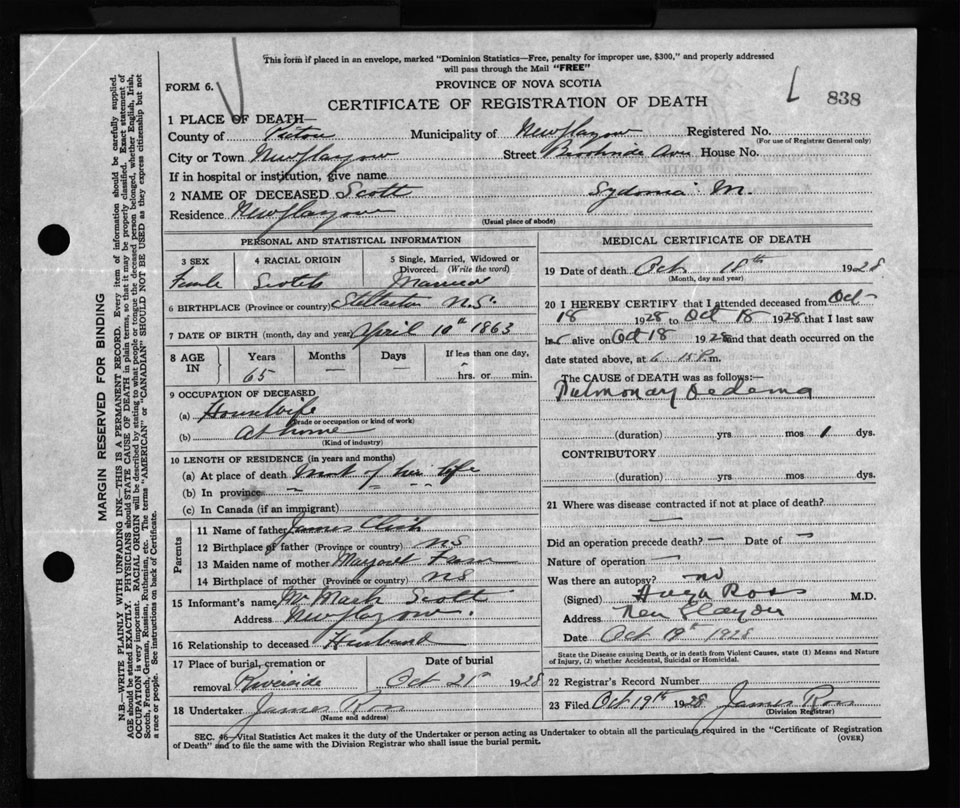 This form if placed in an envelope, marked "Dominion Statistics—Free, penalty for improper use, $300," and properly addressed
will pass through the Mail "FREE"
FORM 6.
PROVINCE OF NOVA SCOTIA
CERTIFICATE OF REGISTRATION OF DEATH
838
1 PLACE OF DEATH—
County of Pictou Municipality of New Glasgow Registered No.
(For use of Registrar General only)
City or Town New Glasgow Street Brookside Ave House No.
If in hospital or institution, give name
2 NAME OF DECEASED Scott Sydonia M.
Residence New Glasgow
(Usual place of abode)
PERSONAL AND STATISTICAL INFORMATION
3 SEX 4 RACIAL ORIGIN 5 Single, Married, Widowed or
Divorced. (Write the word)
Female Scotch Married
6 BIRTHPLACE (Province or country) Stellarton N.S.
7 DATE OF BIRTH (month, day and year) April 10th 1863
8 AGE IN Years Months Days If less than one day,
65 — — hrs. or min.
9 OCCUPATION OF DECEASED
(a) Housewife
(Trade or occupation or kind of work)
(b) At home
(Kind of industry)
10 LENGTH OF RESIDENCE (in years and months)
(a) At place of death most of her life
(b) In province " " "
(c) In Canada (if an immigrant)
Parents
11 Name of father James
12 Birthplace of father (Province or country) NS
13 Maiden name of mother Margaret
14 Birthplace of mother (Province or country) NS
15 Informant's name Mr Mark Scott
Address New Glasgow.
16 Relationship to deceased Husband
17 Place of burial, cremation or Date of burial
removal Riverside Oct 21st 1928
18 Undertaker James Ross
(Name and address)
MEDICAL CERTIFICATE OF DEATH
19 Date of death Oct 18th 1928
(Month, day and year)
20 I HEREBY CERTIFY that I attended deceased from Oct
18 1928 to Oct 18 1928 that I last saw
her alive on Oct 18 1928 and that death occurred on the
date stated above, at 6.15 P.m.
The CAUSE of DEATH was as follows:—
Pulmonary Oedema
(duration) yrs mos 1 dys.
CONTRIBUTORY
(duration) yrs. mos. dys.
21 Where was disease contracted if not at place of death?
—
Did an operation precede death? — Date of —
Nature of operation —
Was there an autopsy? no
(Signed) Hugh Ross M.D.
Address New Glasgow
Date Oct 19th 1928
State the Disease causing Death, or in death from Violent Causes, state (1) Means and Nature
of Injury, (2) whether Accidental, Suicidal or Homicidal.
22 Registrar's Record Number
23 Filed Oct 19th 1928 James Ross
(Division Registrar)
SEC. 46—Vital Statistics Act makes it the duty of the Undertaker or person acting as Undertaker to obtain all the particulars required in the "Certificate of Registration
of Death" and to file the same with the Division Registrar who shall issue the burial permit.
(OVER)
MARGIN RESERVED FOR BINDING
N.B.—WRITE PLAINLY WITH UNFADING INK—THIS IS A PERMANENT RECORD. Every item of information should be carefully supplied.
AGE should be stated EXACTLY. PHYSICIANS should STATE CAUSE OF DEATH in plain terms, so that it may be properly classified. Exact statement of
OCCUPATION is very important. RACIAL ORIGIN will be described by stating to what people or tongue the deceased person belonged, whether English, Irish,
Scotch, French, German, Russian, Ruthenian, etc. The terms "AMERICAN" or "CANADIAN" SHOULD NOT BE USED as they express citizenship but not
a race or people. See instructions on back of Certificate.